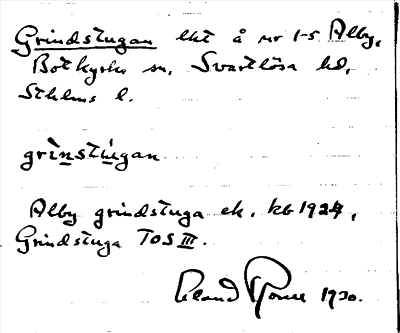 Grindstugan lht å nr 1-5 Alby,
Botkyrka sn. Svartlösa hd.
Sthlms l.
grìnstúgan
Alby grindstuga ek. kb 1924,
Grindstuga TOS III.
1930.